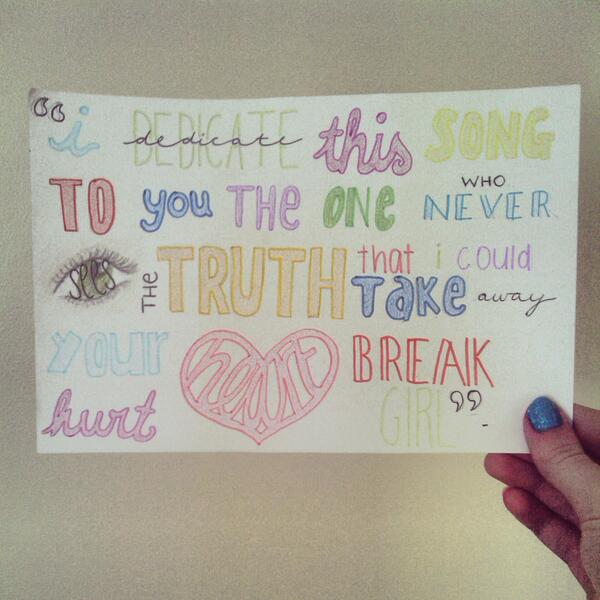 “ i DEDICATE dedicate this SONG
TO you THE ONE WHO NEVER
sees THE TRUTH that i could
TAKE away
your heart BREAK
hurt GIRL ”